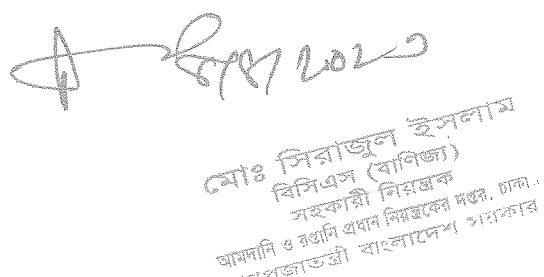 মোঃ সিরাজুল ইসলাম
বিসিএস (বাণিজ্য)
সহকারী নিয়ন্ত্রক
আমদানি ও রপ্তানি প্রধান নিয়ন্ত্রকের দপ্তর, ঢাকা.
বাংলাদেশ সরকার